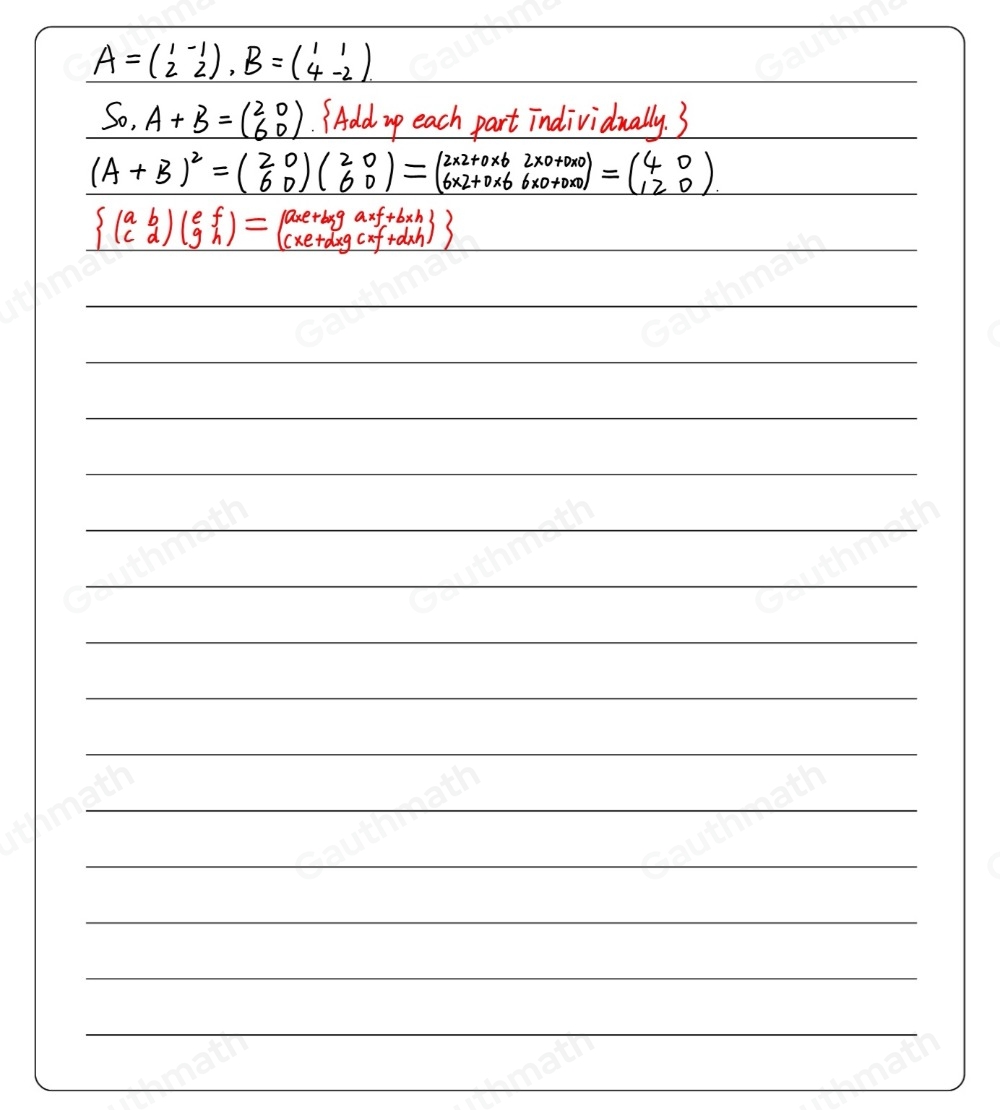 A = (1 -1 2 2), B = (1 1 4 -2).
So, A + B = (2 0 6 0). {Add up each part individually.}
(A + B)² = (2 0 6 0)(2 0 6 0) = (2×2+0×6 2×0+0×0 6×2+0×6 6×0+0×0) = (4 0 12 0).
{(a b c d)(e f g h) = (a×e+b×g a×f+b×h c×e+d×g c×f+d×h)}
Gauthmath